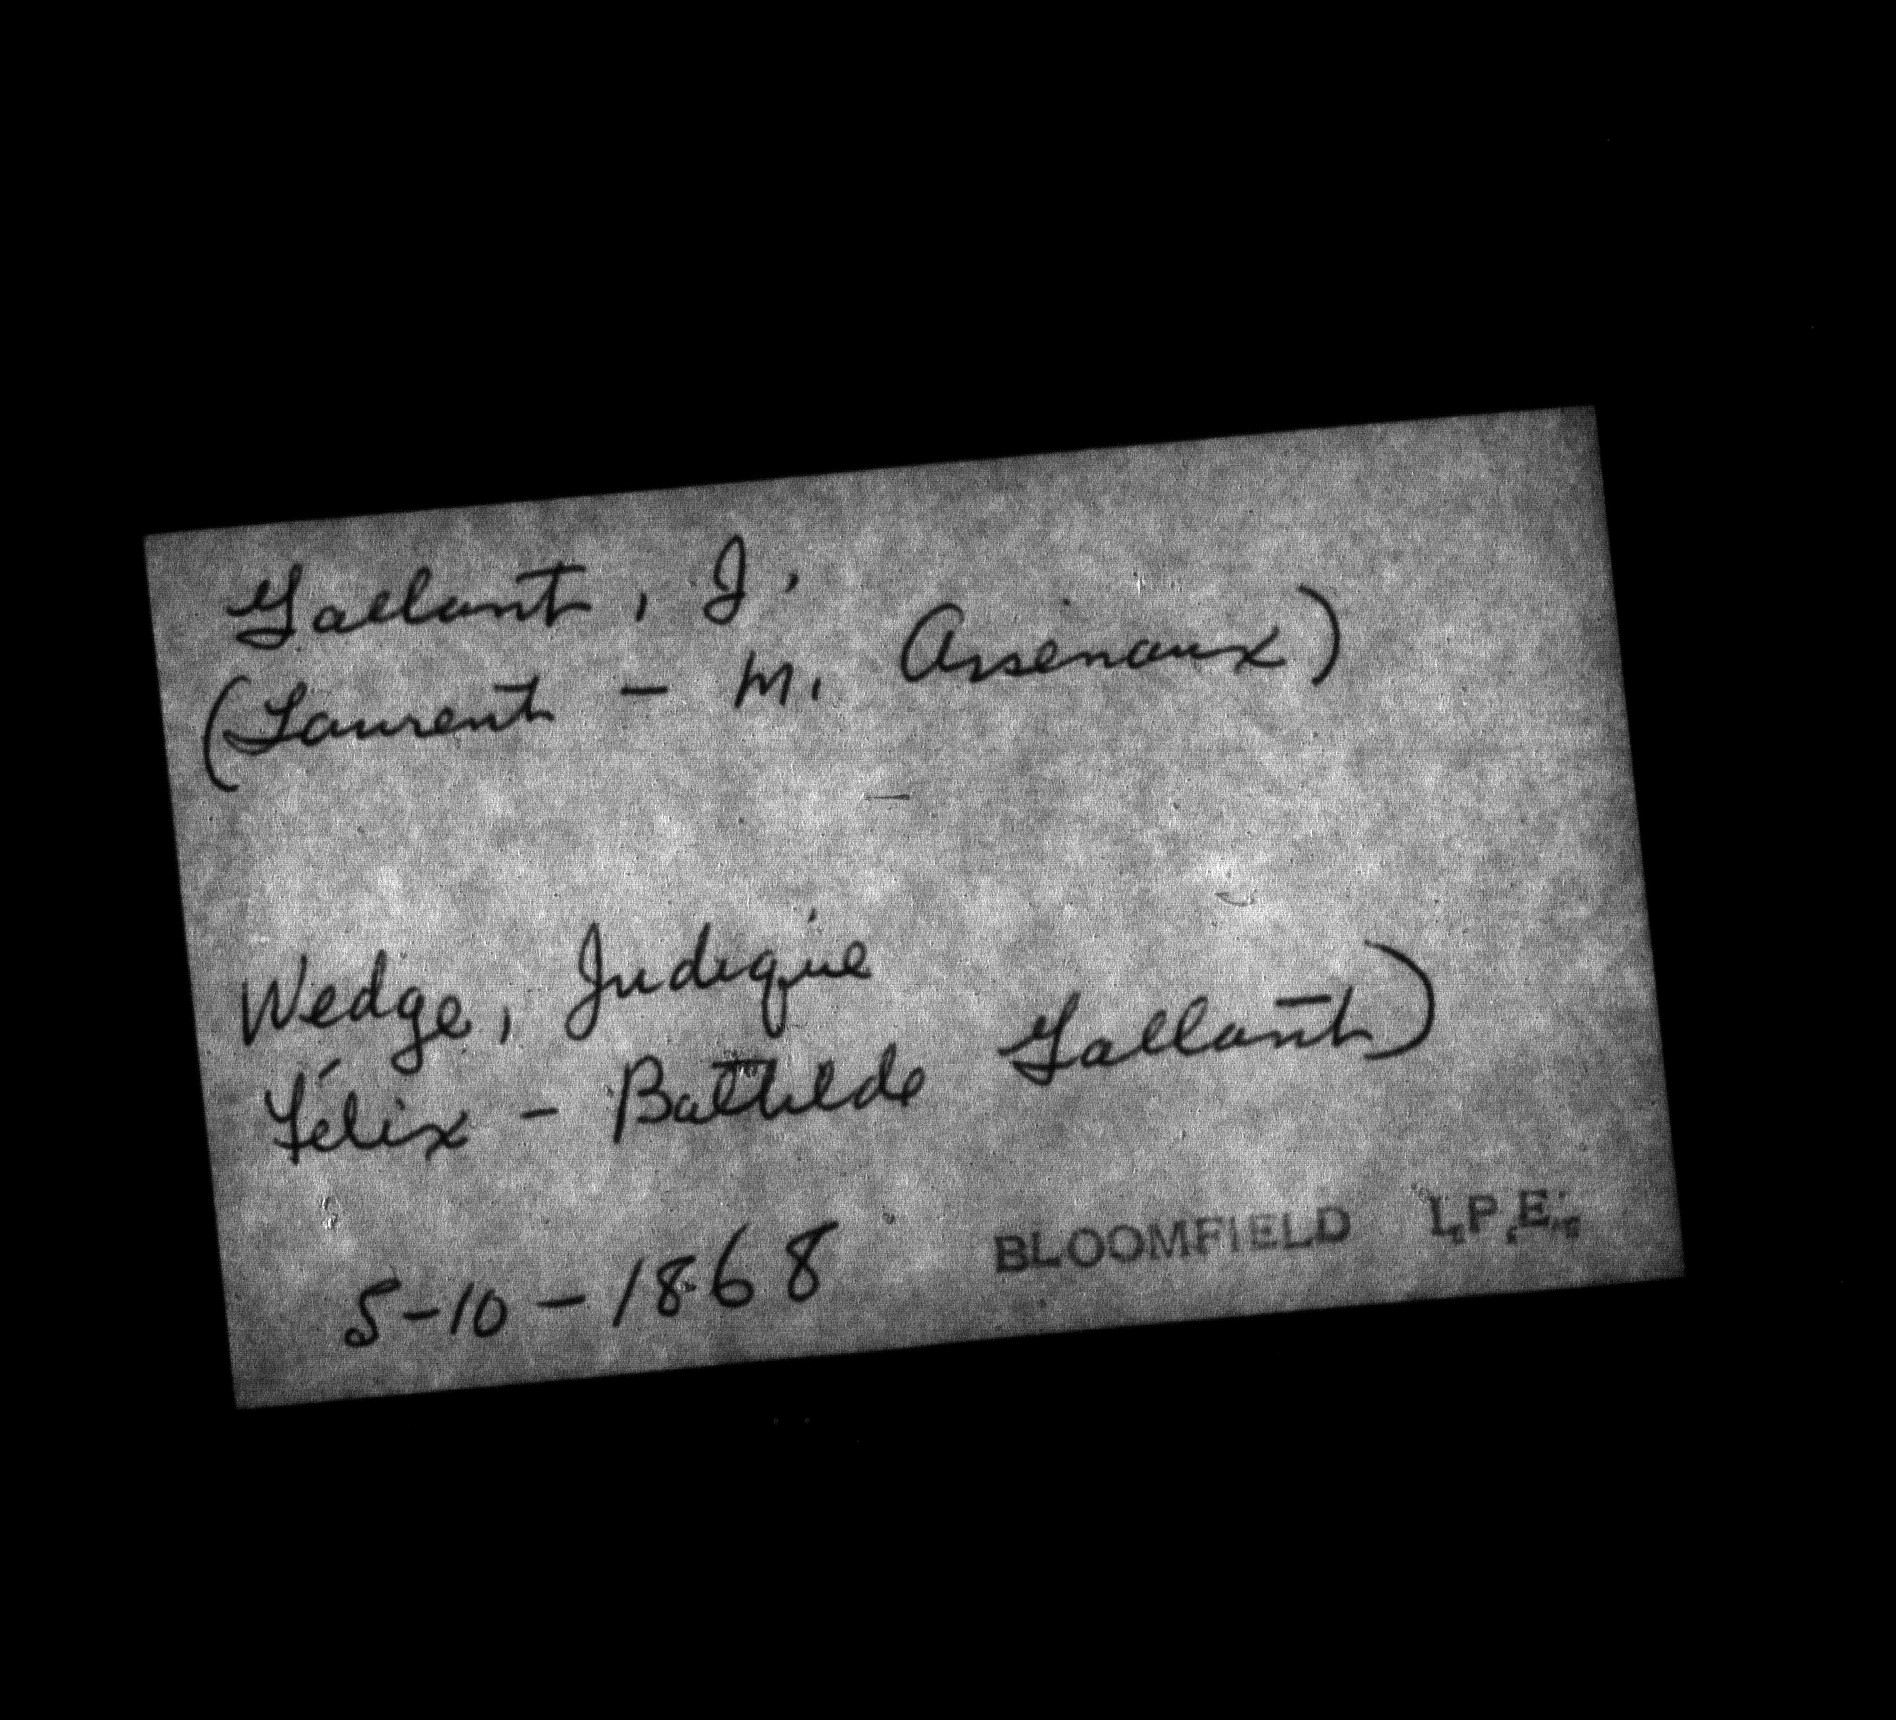 Gallant, J.
(Laurent - M. Arsenaux)
Wedge, Judique
Félix - Bathilde Gallant)
5-10-1868 BLOOMFIELD I.P.E.